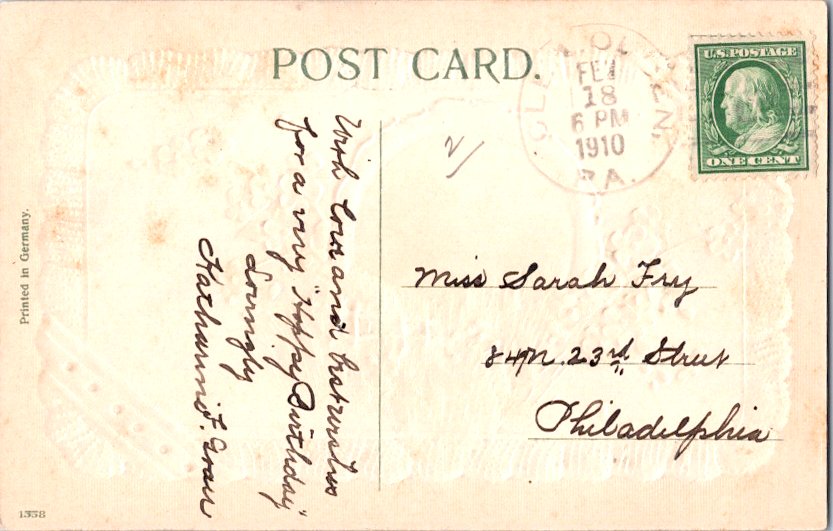 POST CARD.
GLENOLDEN,
FEB
18
6 PM
1910
PA.
U.S. POSTAGE
ONE CENT
With love and best wishes
for a very "Happy Birthday"
Lovingly
Katharine F.
Miss Sarah Fry
N. 23rd Street
Philadelphia
Printed in Germany.
1338